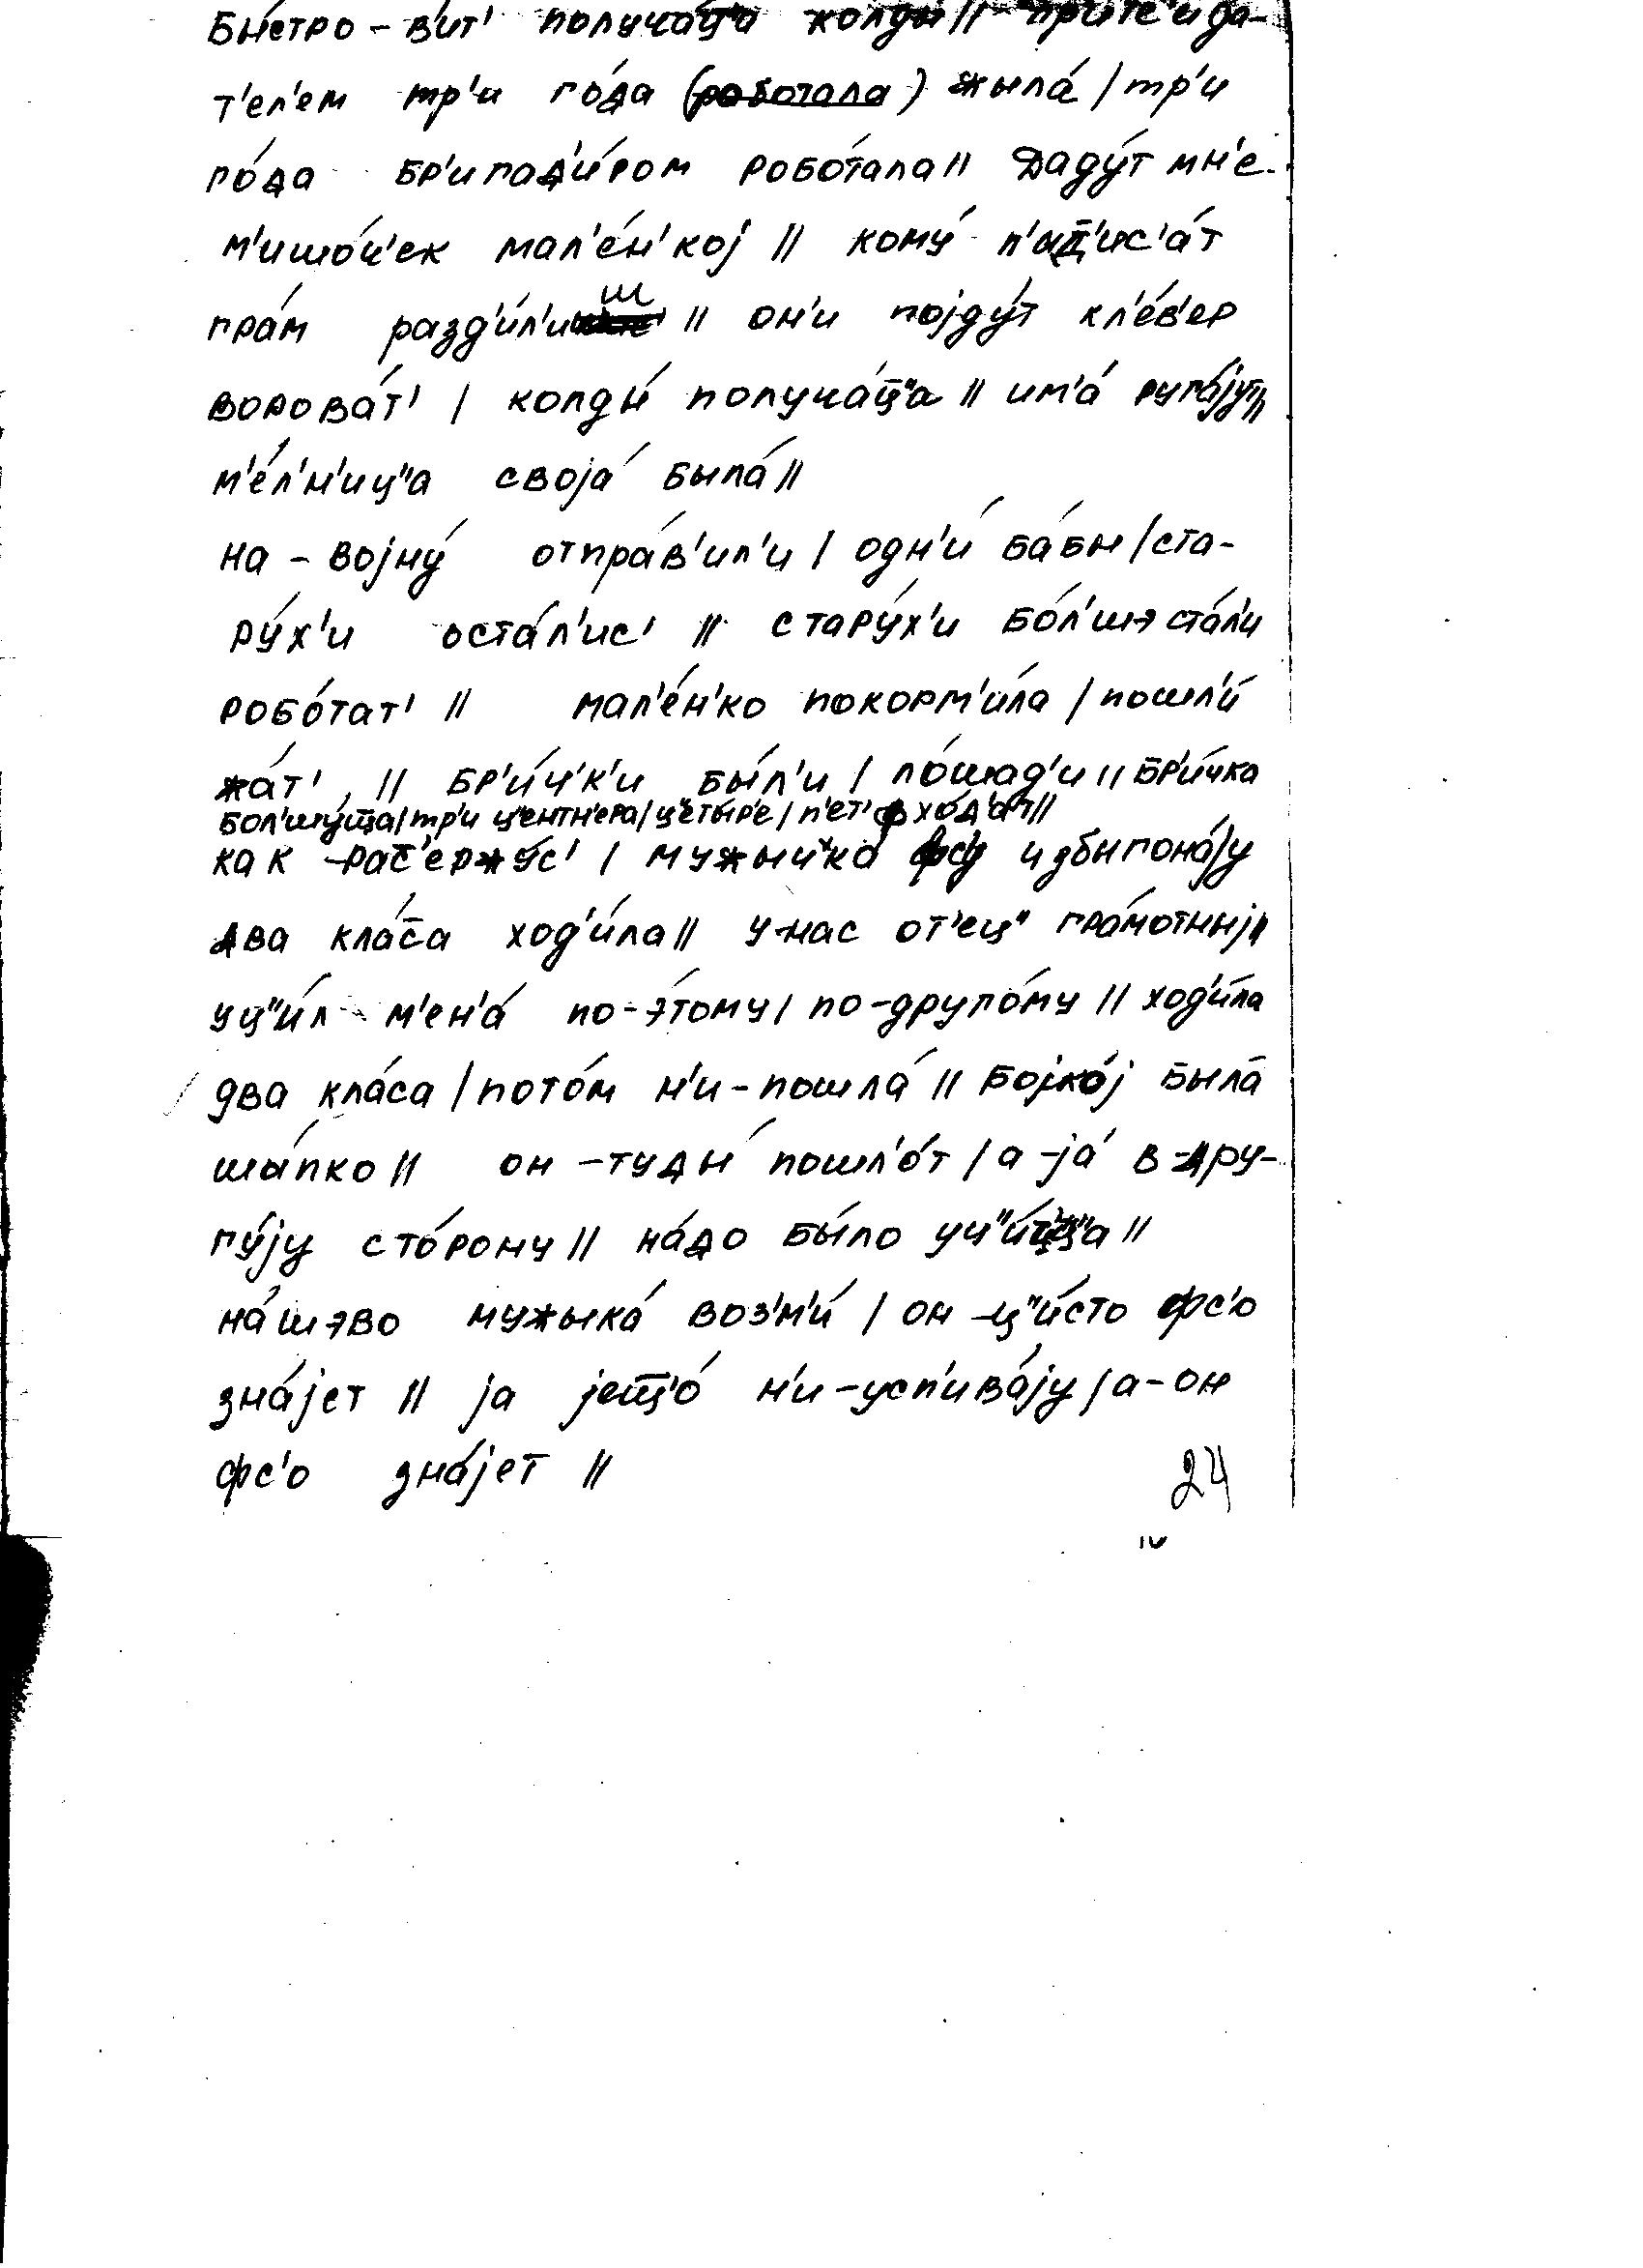 бы́стро – в'ит' получа́ц̄'а колды́ // пр'итс'ида-
т'ел'ем тр'и го́да (работала) жыла́ / тр'и
го́да бр'игад'и́ром робо́тала // Даду́т мн'е
м'ишо́ч'ек мал'е́н'кој // кому́ п'ид'ис'а́т
гра́м разд'и́л'иш // он'и појду́т кл'е́в'ер
ворова́т' / колды́ получа́ц̄"а // им'а́ руга́јут //
м'е́л'н'иц"а своја́ была́ //
на – војну́ отпра́в'ил'и / одн'и́ ба́бы / ста-
ру́х'и оста́л'ис' // стару́х'и бо́л'шэ ста́л'и
робо́тат' // мал'е́н'ко покорм'и́ла / пошл'и́
жа́т' // бр'и́ч'к'и бы́л'и / ло́шад'и // бр'и́чка
бол'шу́щ̄а / тр'и ц'е́нтн'ера / ц"еты́р'е / п'ет' фхо́д'ат //
как – рас̄'ержу́с' / мужыч'ка́ избыгона́ју
два кла́с̄а ход'и́ла // у-нас от'е́ц" гра́мотныј //
уц"и́л м'ен'а́ по-э́тому / по-друго́му // ход'и́ла
два кла́са / пото́м н'и-пошла́ // бојко́ј была́
ша́пко // он – туды́ пошл'о́т / а-ја́ в-дру-
гу́ју сто́рону // на́до бы́ло уч"и́ц̄"а //
на́шэво мужыка́ воз'м'и́ / он – ц"и́сто фс'о
зна́јет // ја јещ̄'о́ н'и-усп'ива́ју / а-он
фс'о зна́јет //
24